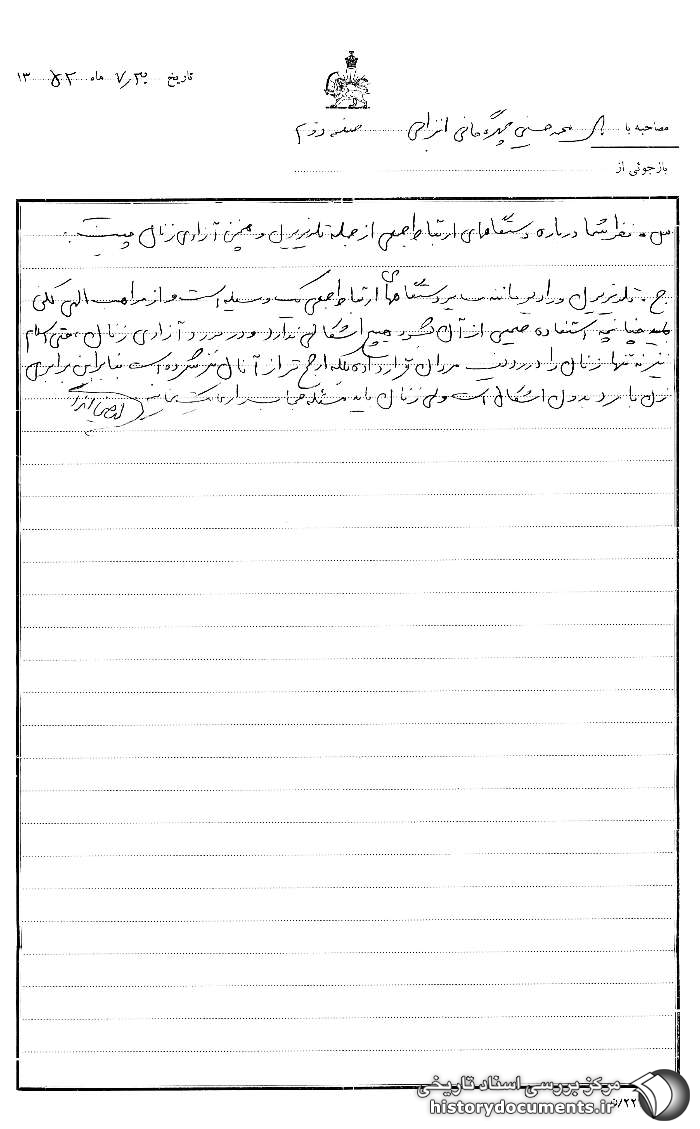 تاریخ ۷/۳۰ ماه ۱۳۵۲
مصاحبه با محمد حسینی صفحه دوم
بازجوئی از
س ـ نظر شما درباره دستگاههای ارتباط جمعی از جمله تلویزیون و همچنین آزادی زنان چیست
ج ـ تلویزیون و رادیو مانند سایر دستگاههای ارتباط جمعی یک وسیله است و از مواهب الهی
چنانچه استفاده صحیح از آن بشود هیچ اشکالی ندارد و در مورد آزادی زنان ، حتی اسلام
نیز نه تنها زنان را در ردیف مردان قرار داده بلکه ارجح تر از آنان نیز شمرده است بنابراین برابری
زن با مرد بدون اشکال است ولی زنان باید مسئله حجاب را رعایت نمایند
مرکز بررسی اسناد تاریخی
historydocuments.ir
۵/۲۲